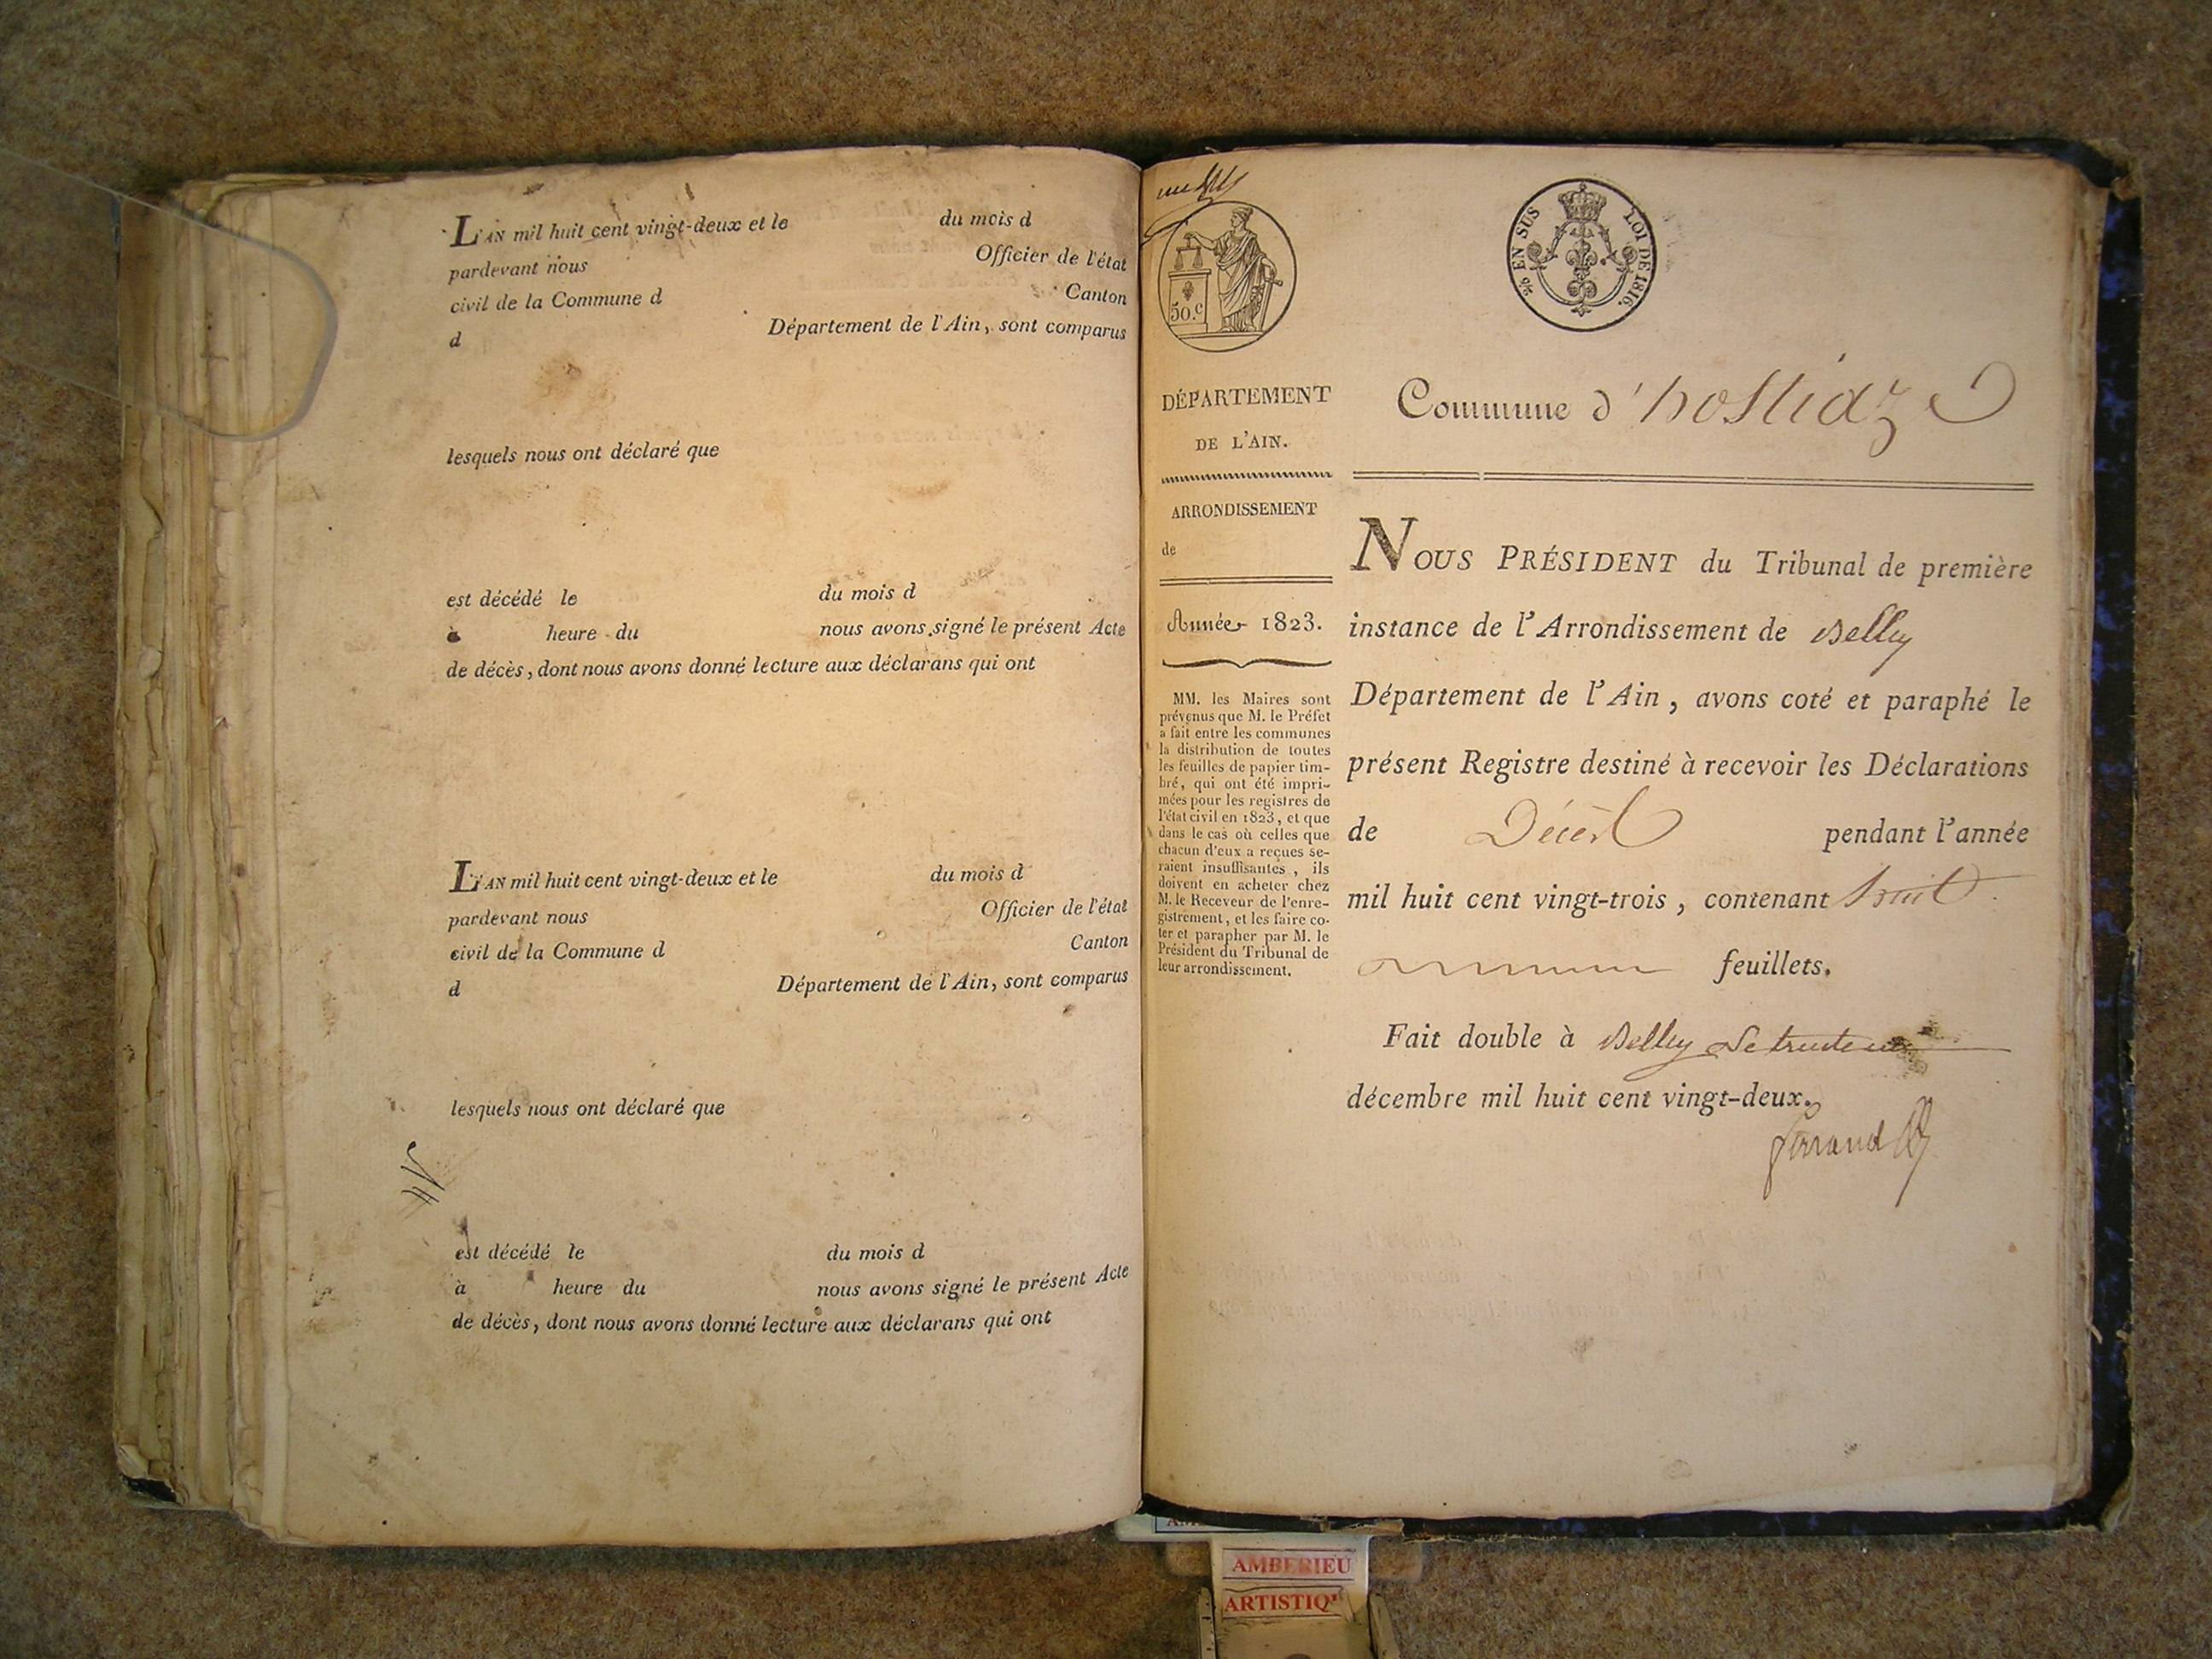 L'AN mil huit cent vingt-deux et le du mois d
pardevant nous Officier de l'état
civil de la Commune d Canton
d Département de l'Ain, sont comparus
lesquels nous ont déclaré que
est décédé le du mois d
à heure du nous avons signé le présent Acte
de décès, dont nous avons donné lecture aux déclarans qui ont
L'AN mil huit cent vingt-deux et le du mois d
pardevant nous Officier de l'état
civil de la Commune d Canton
d Département de l'Ain, sont comparus
lesquels nous ont déclaré que
est décédé le du mois d
à heure du nous avons signé le présent Acte
de décès, dont nous avons donné lecture aux déclarans qui ont
50.c
EN SUS LOI DE 1816.
DÉPARTEMENT
DE L'AIN.
ARRONDISSEMENT
de
Année 1823.
MM. les Maires sont
prévenus que M. le Préfet
a fait entre les communes
la distribution de toutes
les feuilles de papier tim-
bré, qui ont été impri-
mées pour les registres de
l'état civil en 1823, et que
dans le cas où celles que
chacun d'eux a reçues se-
raient insuffisantes, ils
doivent en acheter chez
M. le Receveur de l'enre-
gistrement, et les faire co-
ter et parapher par M. le
Président du Tribunal de
leur arrondissement.
Commune d'hostiaz
NOUS PRÉSIDENT du Tribunal de première
instance de l'Arrondissement de Belley
Département de l'Ain, avons coté et paraphé le
présent Registre destiné à recevoir les Déclarations
de Décès pendant l'année
mil huit cent vingt-trois, contenant huit
feuillets.
Fait double à Belley Le trente
décembre mil huit cent vingt-deux.
AMBERIEU
ARTISTIQ